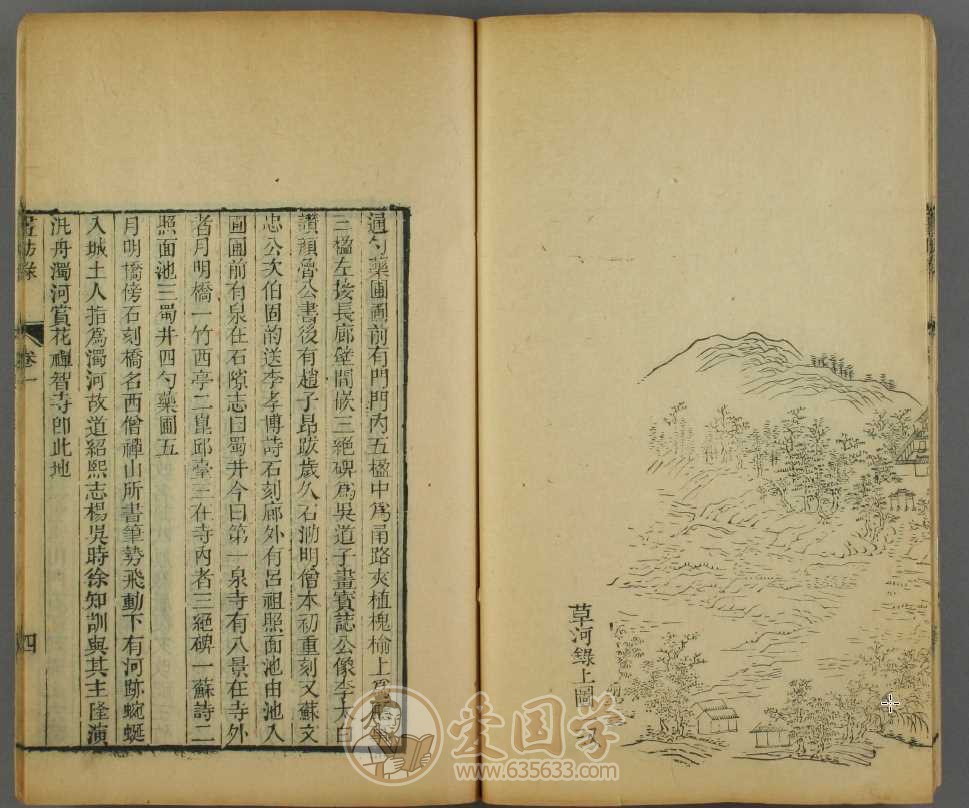 草河錄上圖
通勺藥圃圃前有門門內五楹中爲甬路夾植槐榆上爲廳
三楹左接長廊壁間嵌三絕碑爲吳道子畫寶誌公像李太白
讚顏魯公書後有趙子昂跋歲久石泐明僧本初重刻又蘇文
忠公次伯固韵送李孝博詩石刻廊外有呂祖照面池由池入
圃圃前有泉在石隙志曰蜀井今曰第一泉寺有八景在寺外
者月明橋一竹西亭二崑邱臺三在寺內者三絕碑一蘇詩二
照面池三蜀井四勺藥圃五
月明橋傍石刻橋名西僧禪山所書筆勢飛動下有河跡蜿蜒
入城土人指爲濁河故道紹熙志楊吳時徐知訓與其主隆演
汎舟濁河賞花禪智寺卽此地
卷一
四
爱国学
www.635633.com